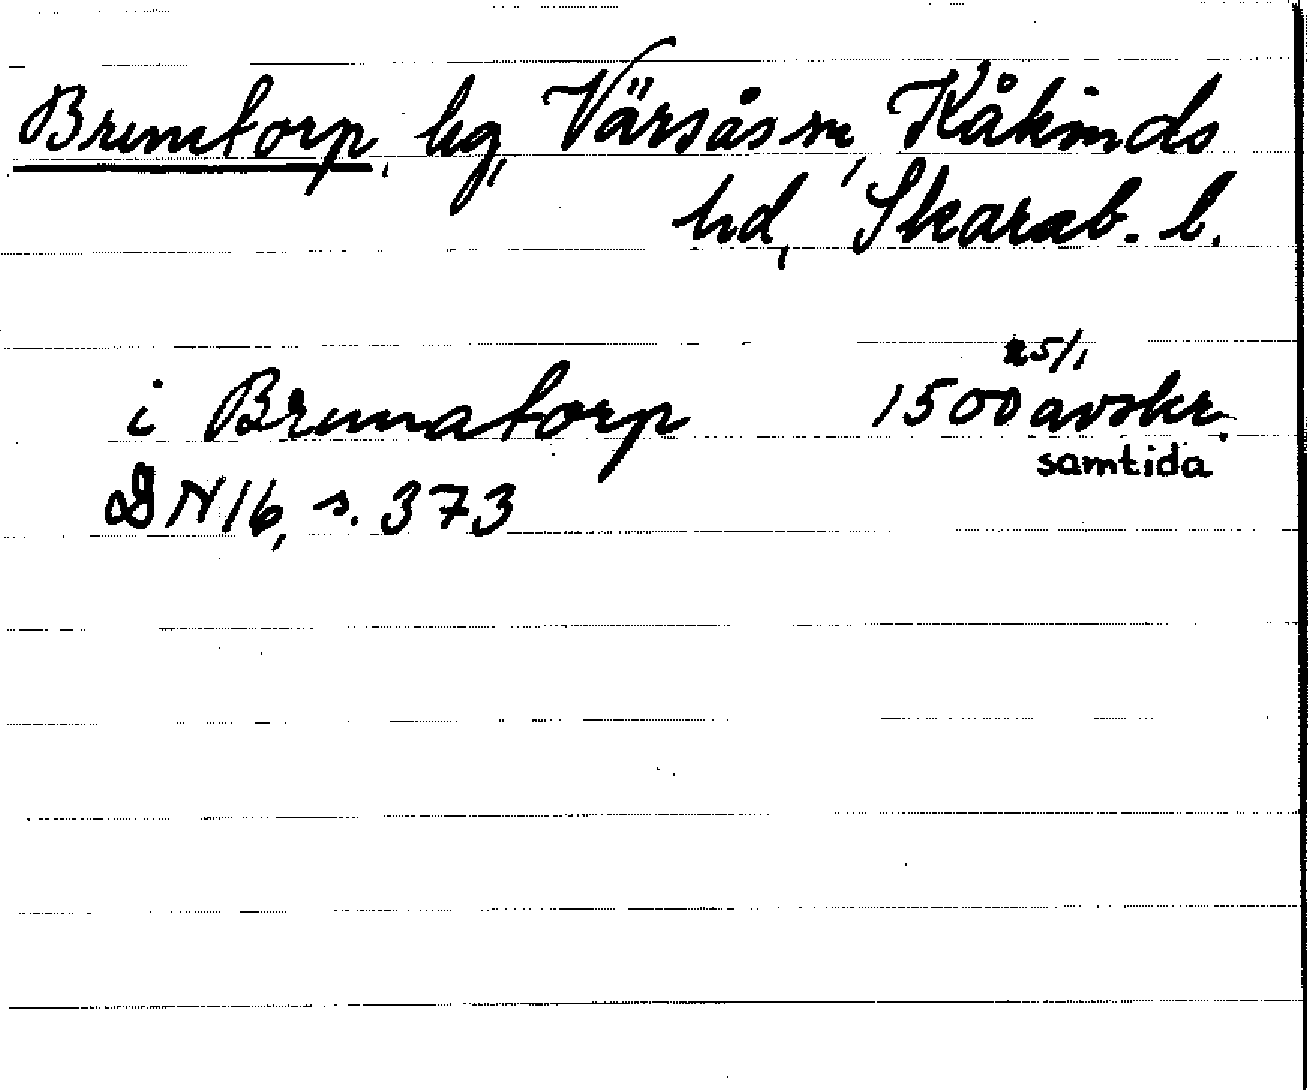 Bruntorp, hg, Värsås sn, Kåkinds
hd, Skarab. l.
25/1
i Brunatorp 1500 avskr.
samtida
DN 16, s. 373